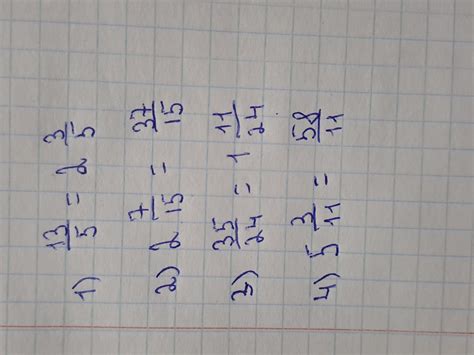 1) 13/5 = 2 3/5
2) 2 7/15 = 37/15
3) 35/24 = 1 11/24
4) 5 3/11 = 58/11